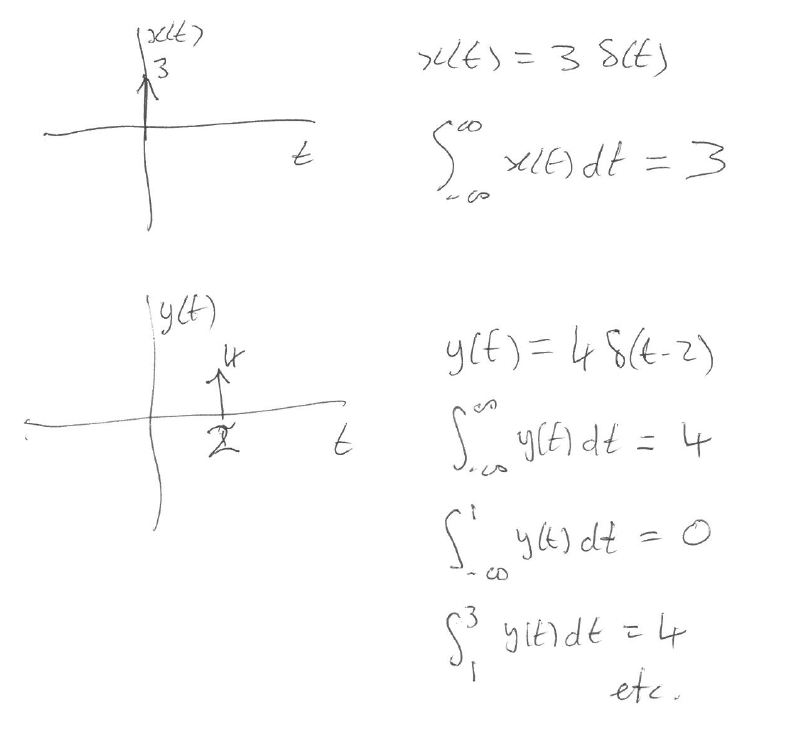 x(t)
3
t
x(t) = 3 δ(t)
∫_{-∞}^{∞} x(t) dt = 3
y(t)
4
2
t
y(t) = 4 δ(t-2)
∫_{-∞}^{∞} y(t) dt = 4
∫_{-∞}^{1} y(t) dt = 0
∫_{1}^{3} y(t) dt = 4
etc.